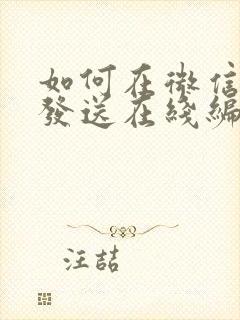 如何在微信
發送在綫編
汪喆